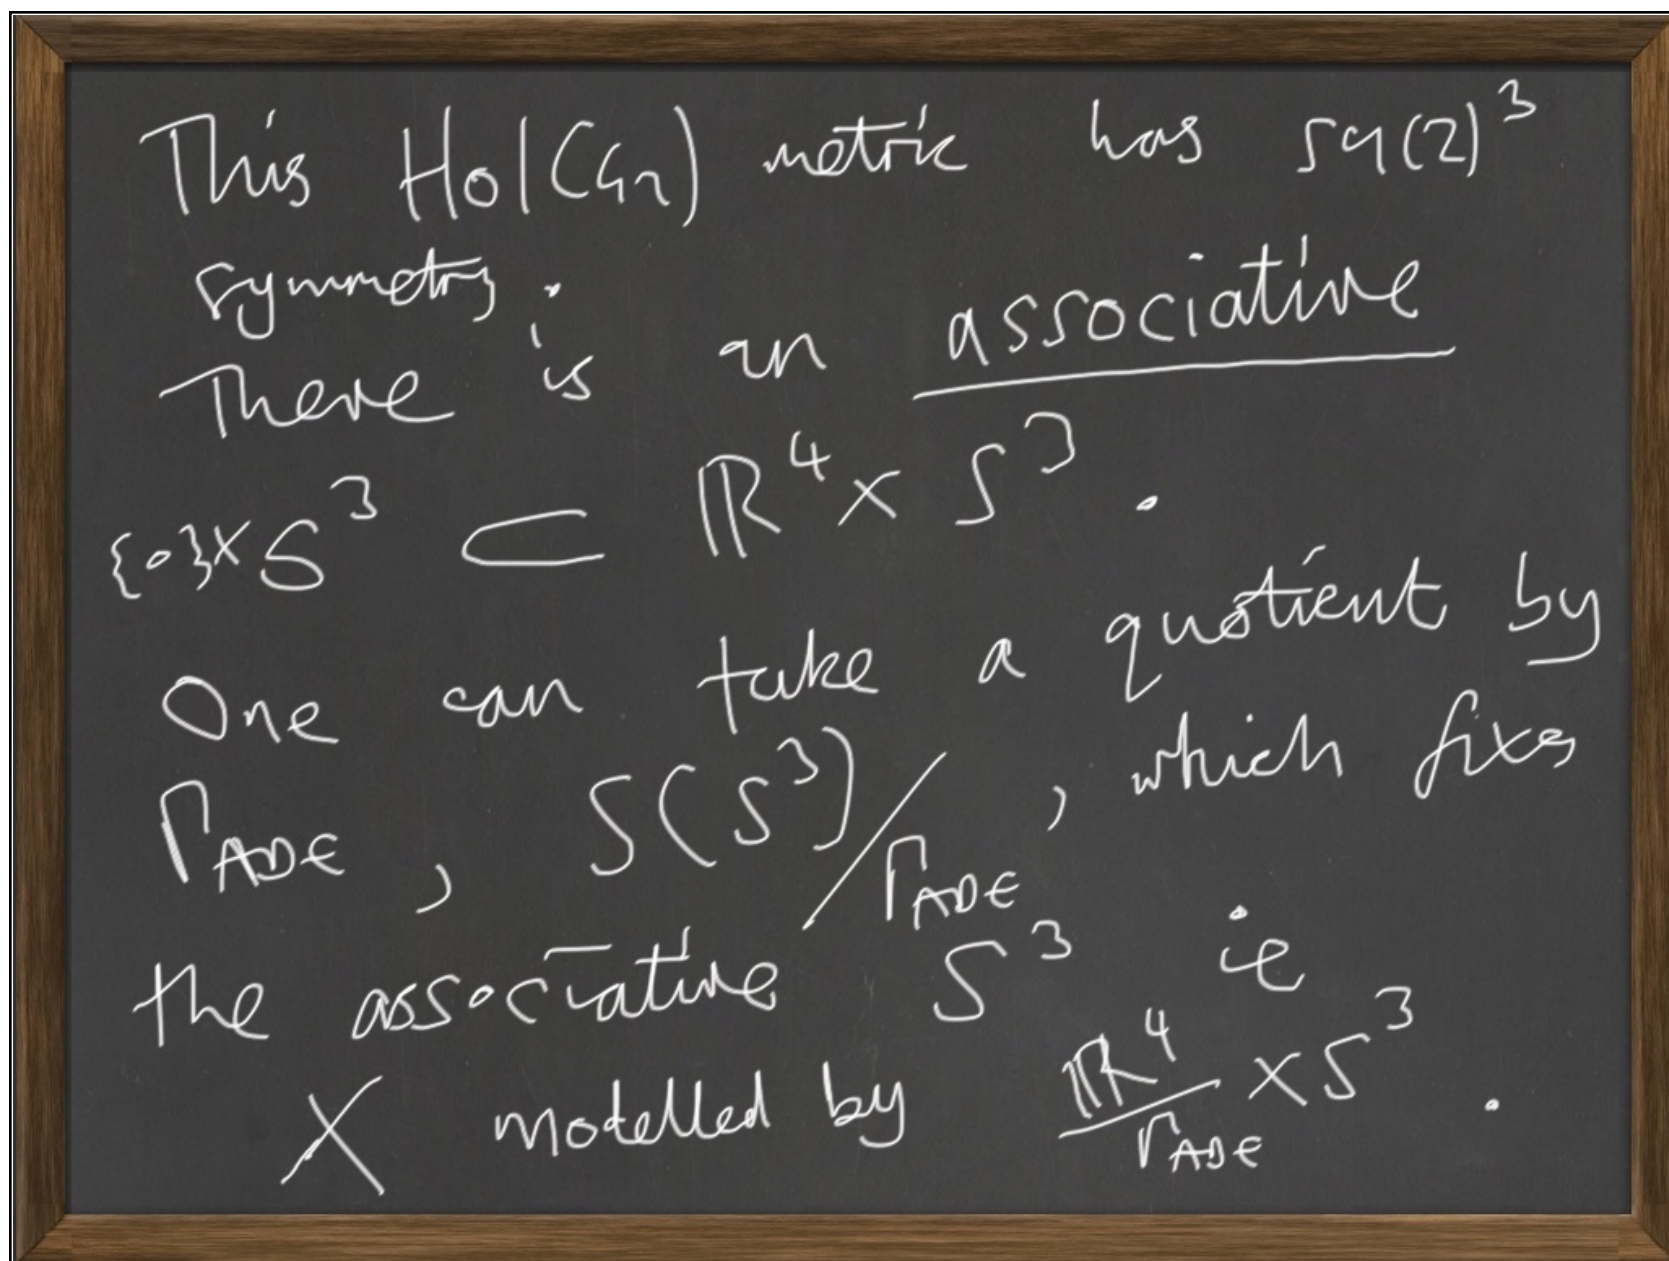 This Hol(G₂) metric has SU(2)³
symmetry.
There is an associative
{0}×S³ ⊂ ℝ⁴×S³.
One can take a quotient by
Γ_ADE, S(S³)/Γ_ADE, which fixes
the associative S³ ie
X modelled by ℝ⁴/Γ_ADE ×S³.